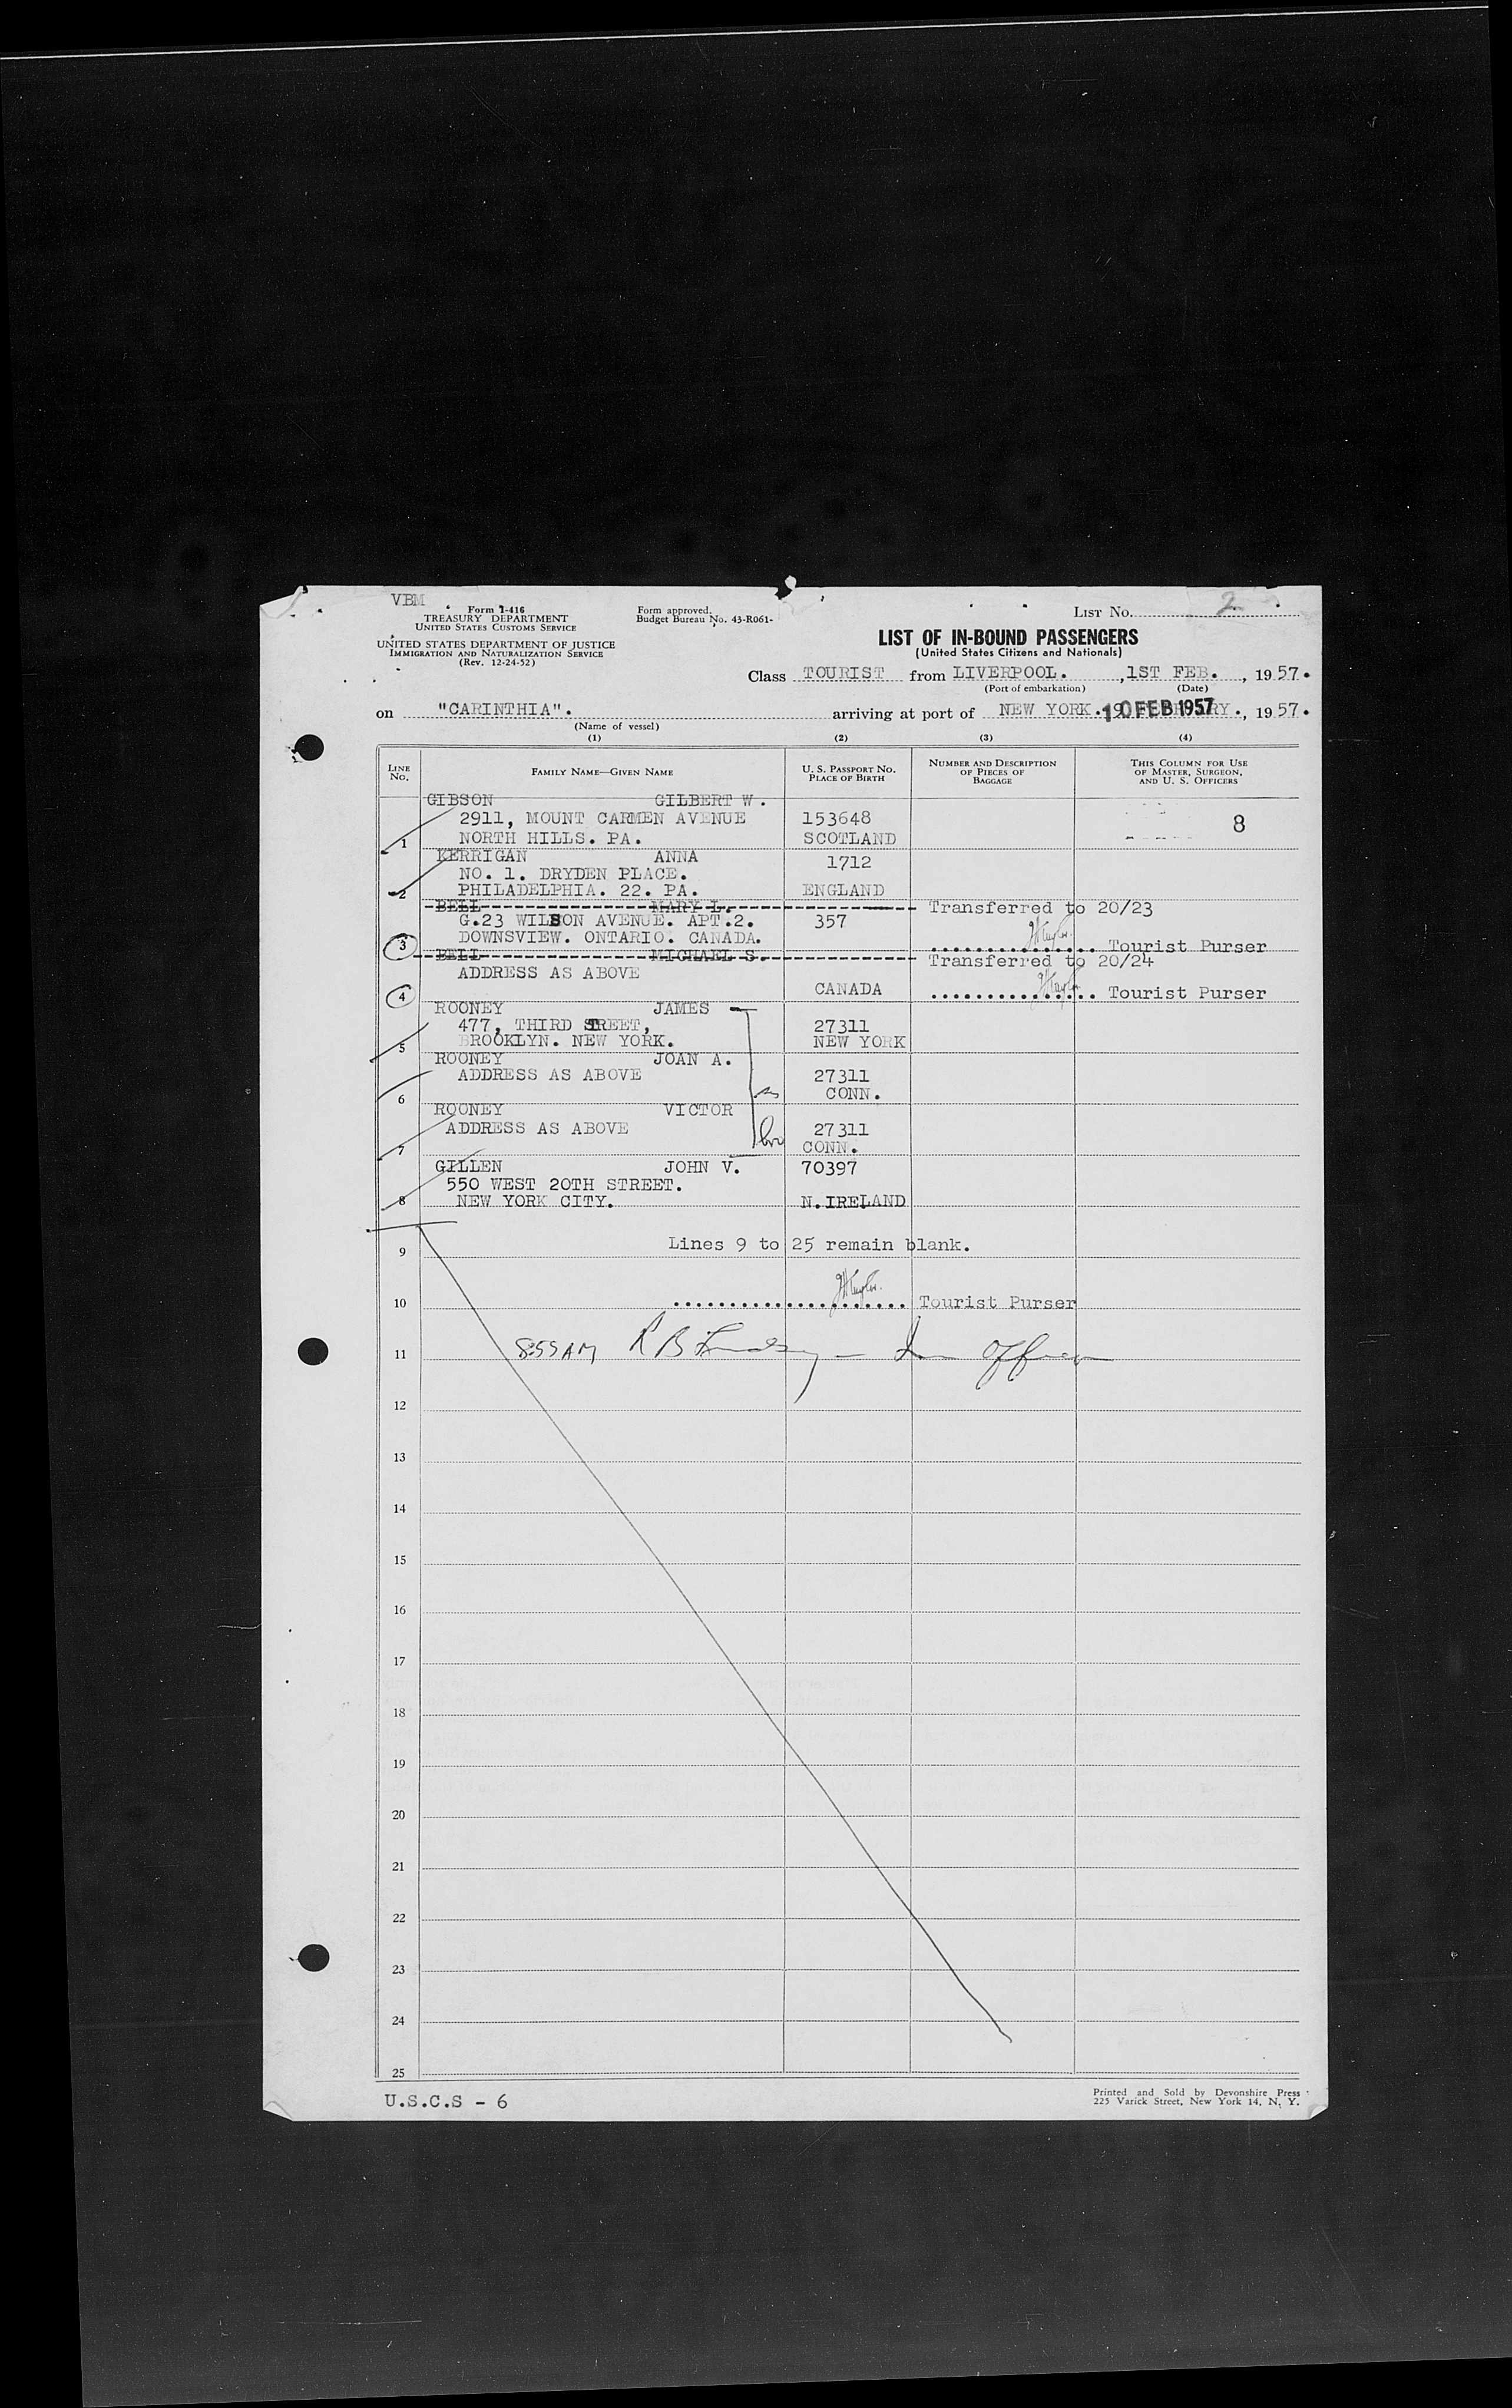 VBM
Form I-416
TREASURY DEPARTMENT
UNITED STATES CUSTOMS SERVICE
UNITED STATES DEPARTMENT OF JUSTICE
IMMIGRATION AND NATURALIZATION SERVICE
(Rev. 12-24-52)
Form approved.
Budget Bureau No. 43-R061-
LIST No. 2
LIST OF IN-BOUND PASSENGERS
(United States Citizens and Nationals)
Class TOURIST from LIVERPOOL. , 1ST FEB. , 1957.
(Port of embarkation) (Date)
on "CARINTHIA". arriving at port of NEW YORK. 10 FEB 1957 , 1957.
(Name of vessel)
(1) (2) (3) (4)
LINE No. FAMILY NAME—GIVEN NAME U. S. PASSPORT No. PLACE OF BIRTH NUMBER AND DESCRIPTION OF PIECES OF BAGGAGE THIS COLUMN FOR USE OF MASTER, SURGEON, AND U. S. OFFICERS
GIBSON GILBERT W.
2911, MOUNT CARMEN AVENUE 153648 8
1 NORTH HILLS. PA. SCOTLAND
KERRIGAN ANNA 1712
NO. 1. DRYDEN PLACE.
2 PHILADELPHIA. 22. PA. ENGLAND
BELL MARY L. Transferred to 20/23
G.23 WILSON AVENUE. APT.2. 357
3 DOWNSVIEW. ONTARIO. CANADA. Tourist Purser
BELL MICHAEL S. Transferred to 20/24
ADDRESS AS ABOVE
4 CANADA Tourist Purser
ROONEY JAMES
477, THIRD STREET, 27311
5 BROOKLYN. NEW YORK. NEW YORK
ROONEY JOAN A.
ADDRESS AS ABOVE 27311
6 CONN.
ROONEY VICTOR
ADDRESS AS ABOVE 27311
7 CONN.
GILLEN JOHN V. 70397
550 WEST 20TH STREET.
8 NEW YORK CITY. N. IRELAND
9 Lines 9 to 25 remain blank.
10 Tourist Purser
11 8:55 AM R B Officer
12
13
14
15
16
17
18
19
20
21
22
23
24
25
U.S.C.S - 6
Printed and Sold by Devonshire Press
225 Varick Street, New York 14, N. Y.